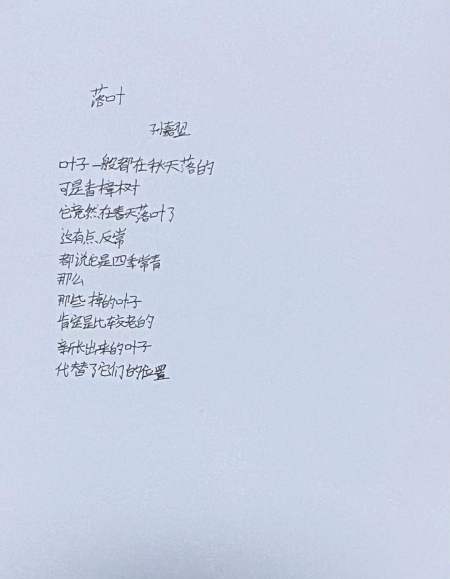 落叶
孙嘉翌
叶子一般都在秋天落的
可是香樟树
它竟然在春天落叶了
这有点反常
都说它是四季常青
那么
那些掉的叶子
肯定是比较老的
新长出来的叶子
代替了它们的位置